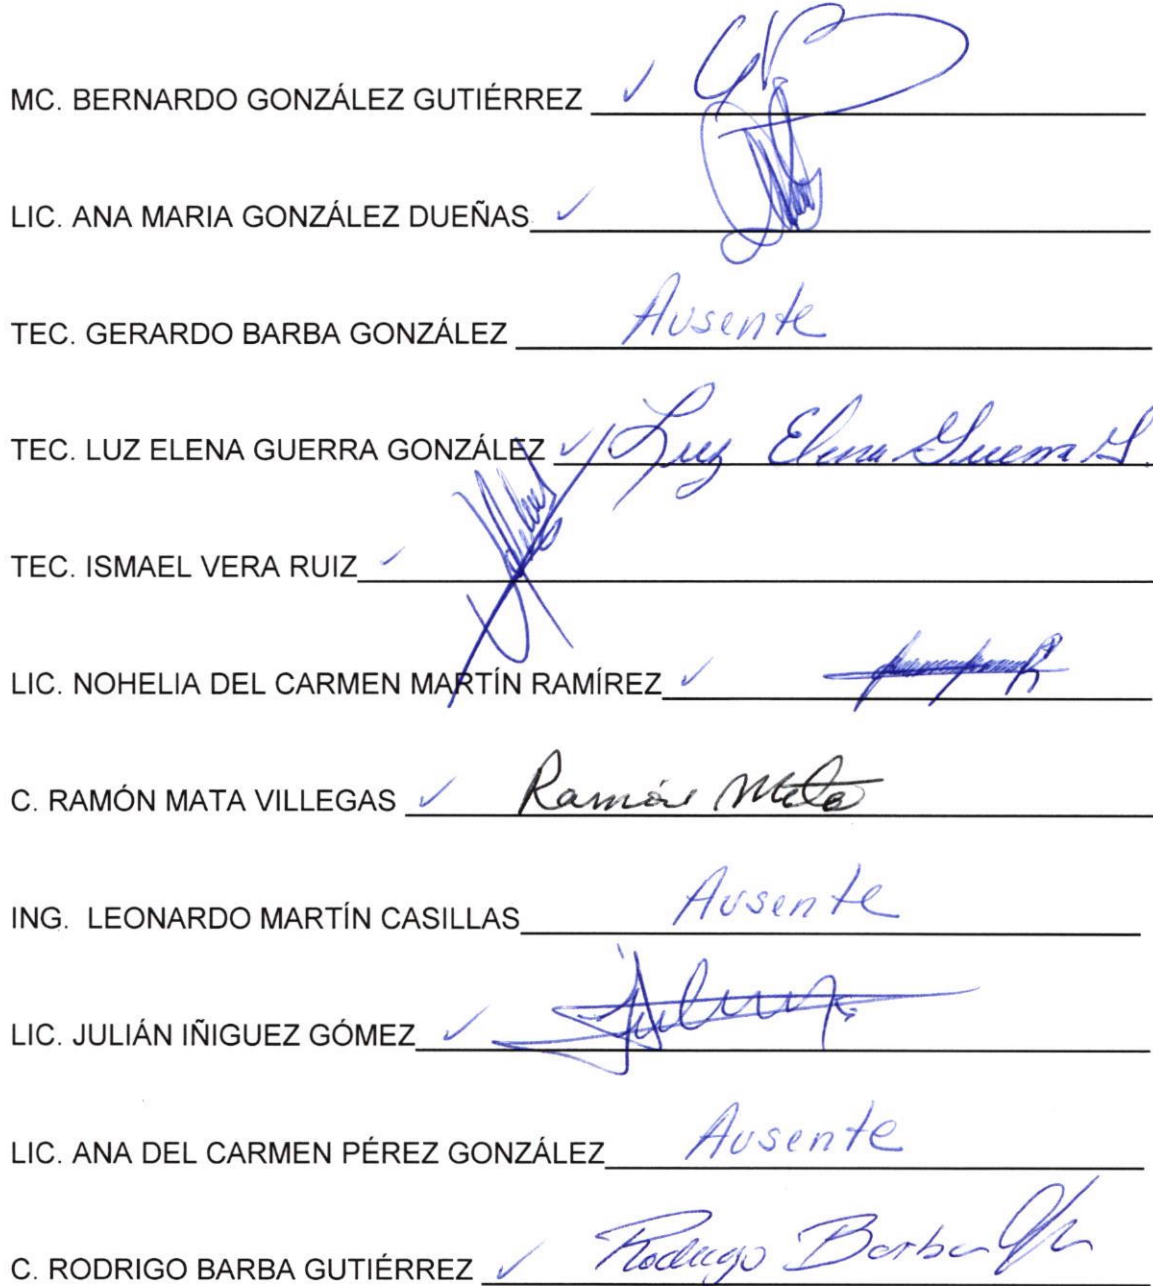 MC. BERNARDO GONZÁLEZ GUTIÉRREZ ✓
LIC. ANA MARIA GONZÁLEZ DUEÑAS ✓
TEC. GERARDO BARBA GONZÁLEZ Ausente
TEC. LUZ ELENA GUERRA GONZÁLEZ ✓ Luz Elena Guerra G.
TEC. ISMAEL VERA RUIZ ✓
LIC. NOHELIA DEL CARMEN MARTÍN RAMÍREZ ✓
C. RAMÓN MATA VILLEGAS ✓ Ramón Mata
ING. LEONARDO MARTÍN CASILLAS Ausente
LIC. JULIÁN IÑIGUEZ GÓMEZ ✓
LIC. ANA DEL CARMEN PÉREZ GONZÁLEZ Ausente
C. RODRIGO BARBA GUTIÉRREZ ✓ Rodrigo Barba